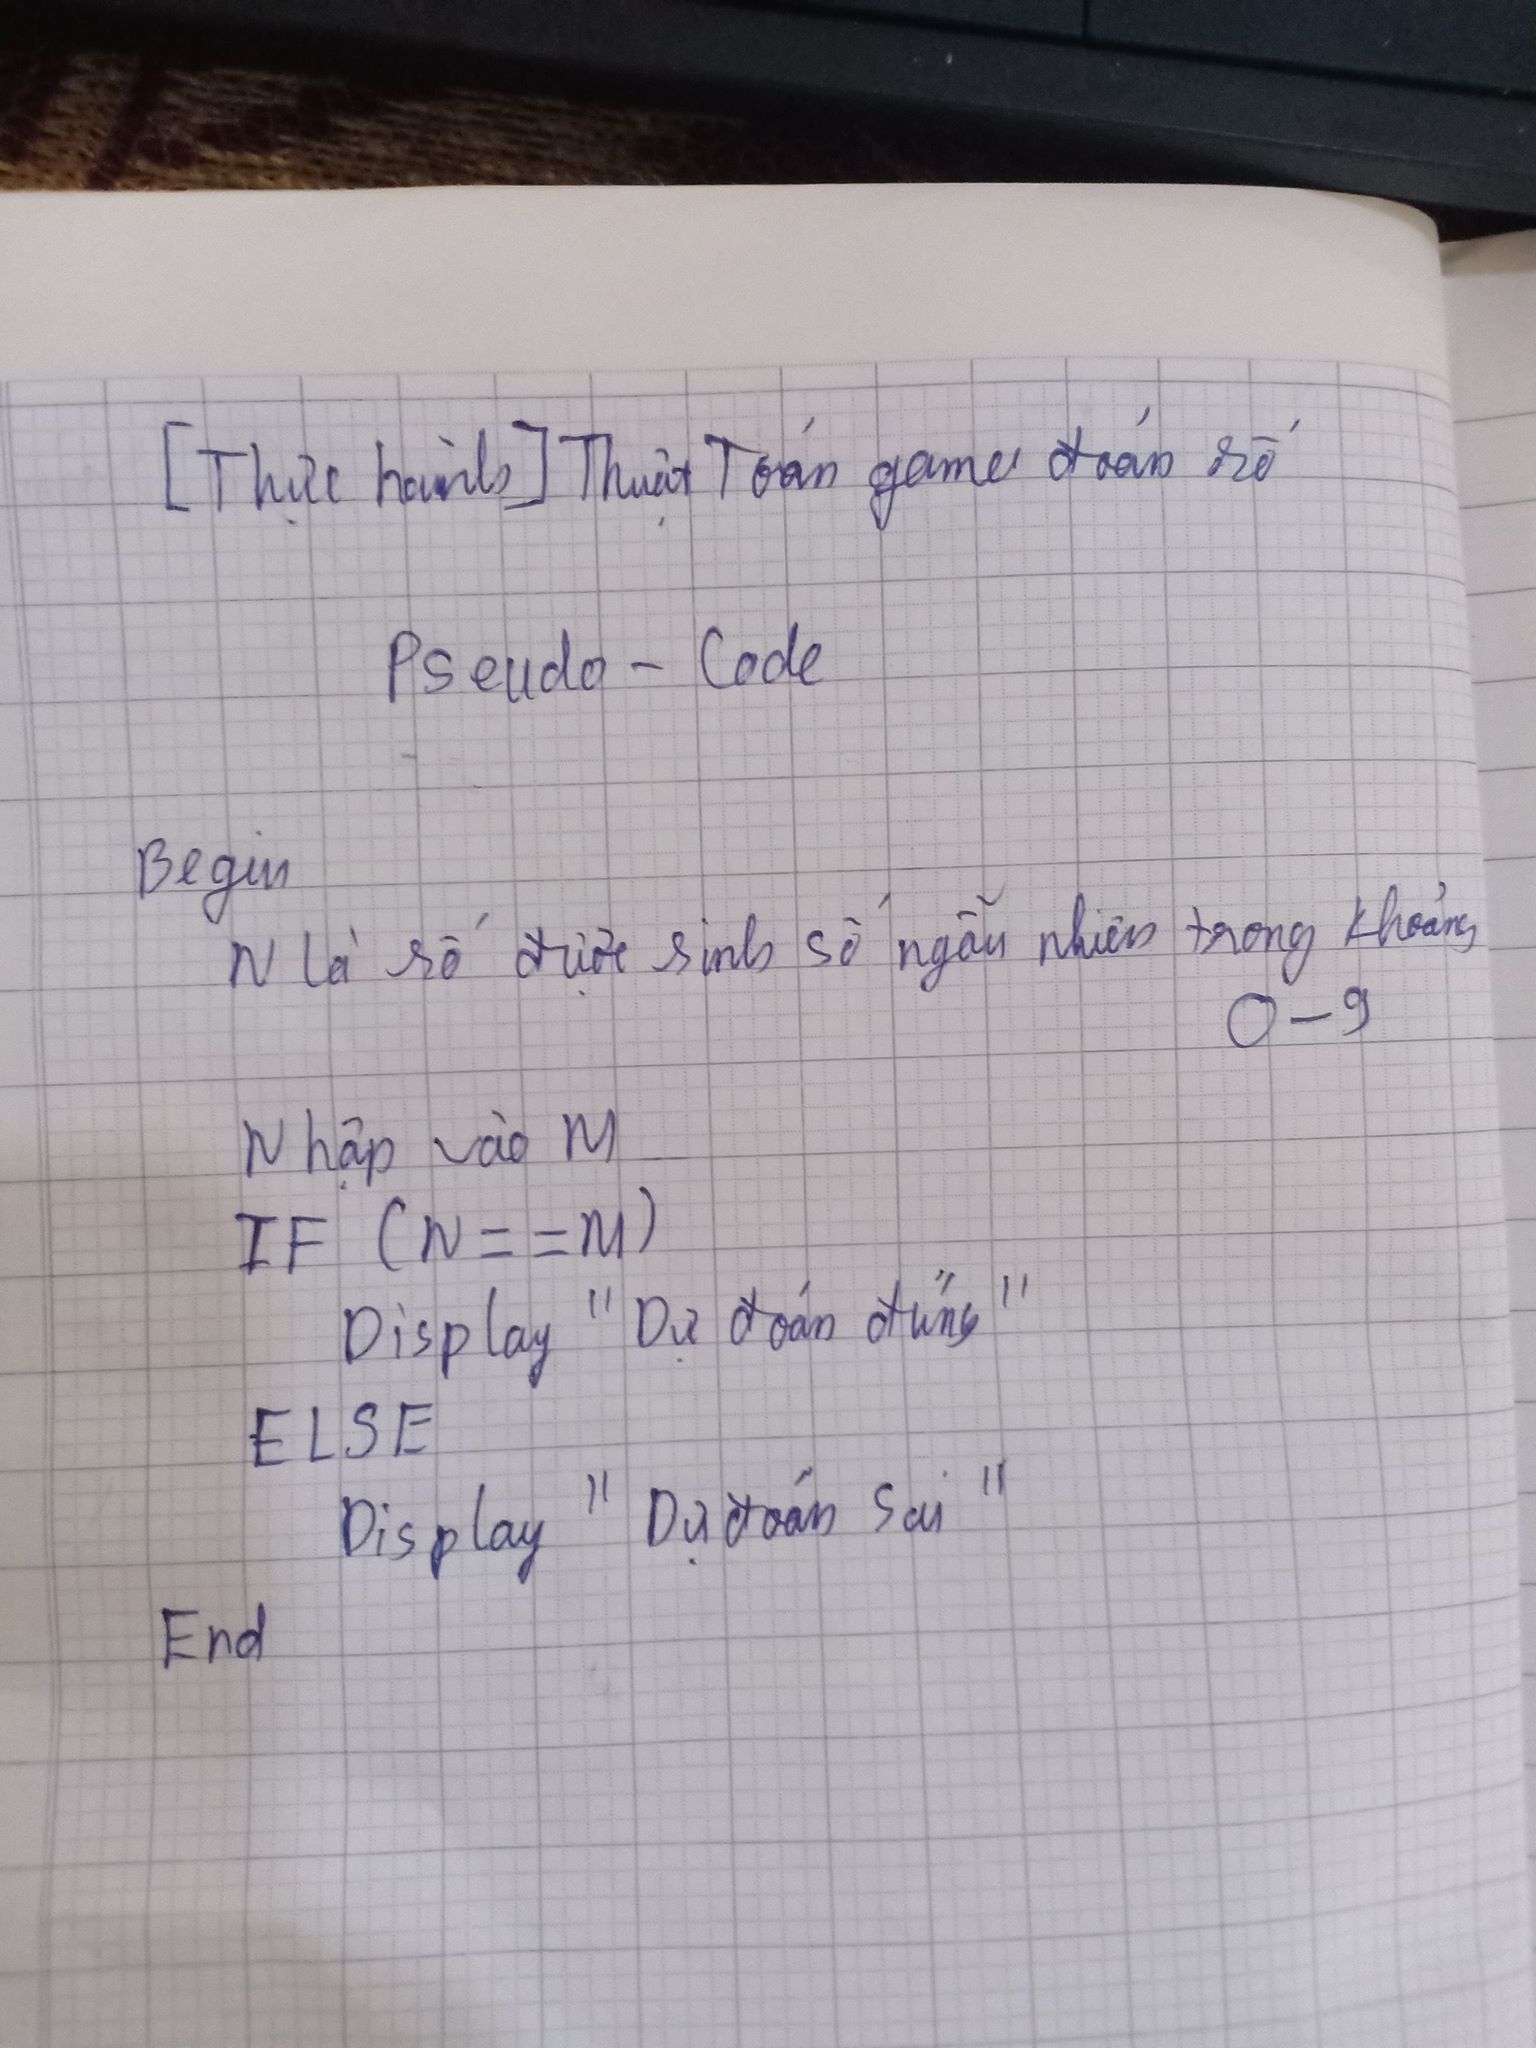 [Thực hành] Thuật Toán game đoán số
Pseudo - Code
Begin
N là số được sinh số ngẫu nhiên trong khoảng
0-9
Nhập vào M
IF (N == M)
Display "Dự đoán đúng"
ELSE
Display "Dự đoán sai"
End